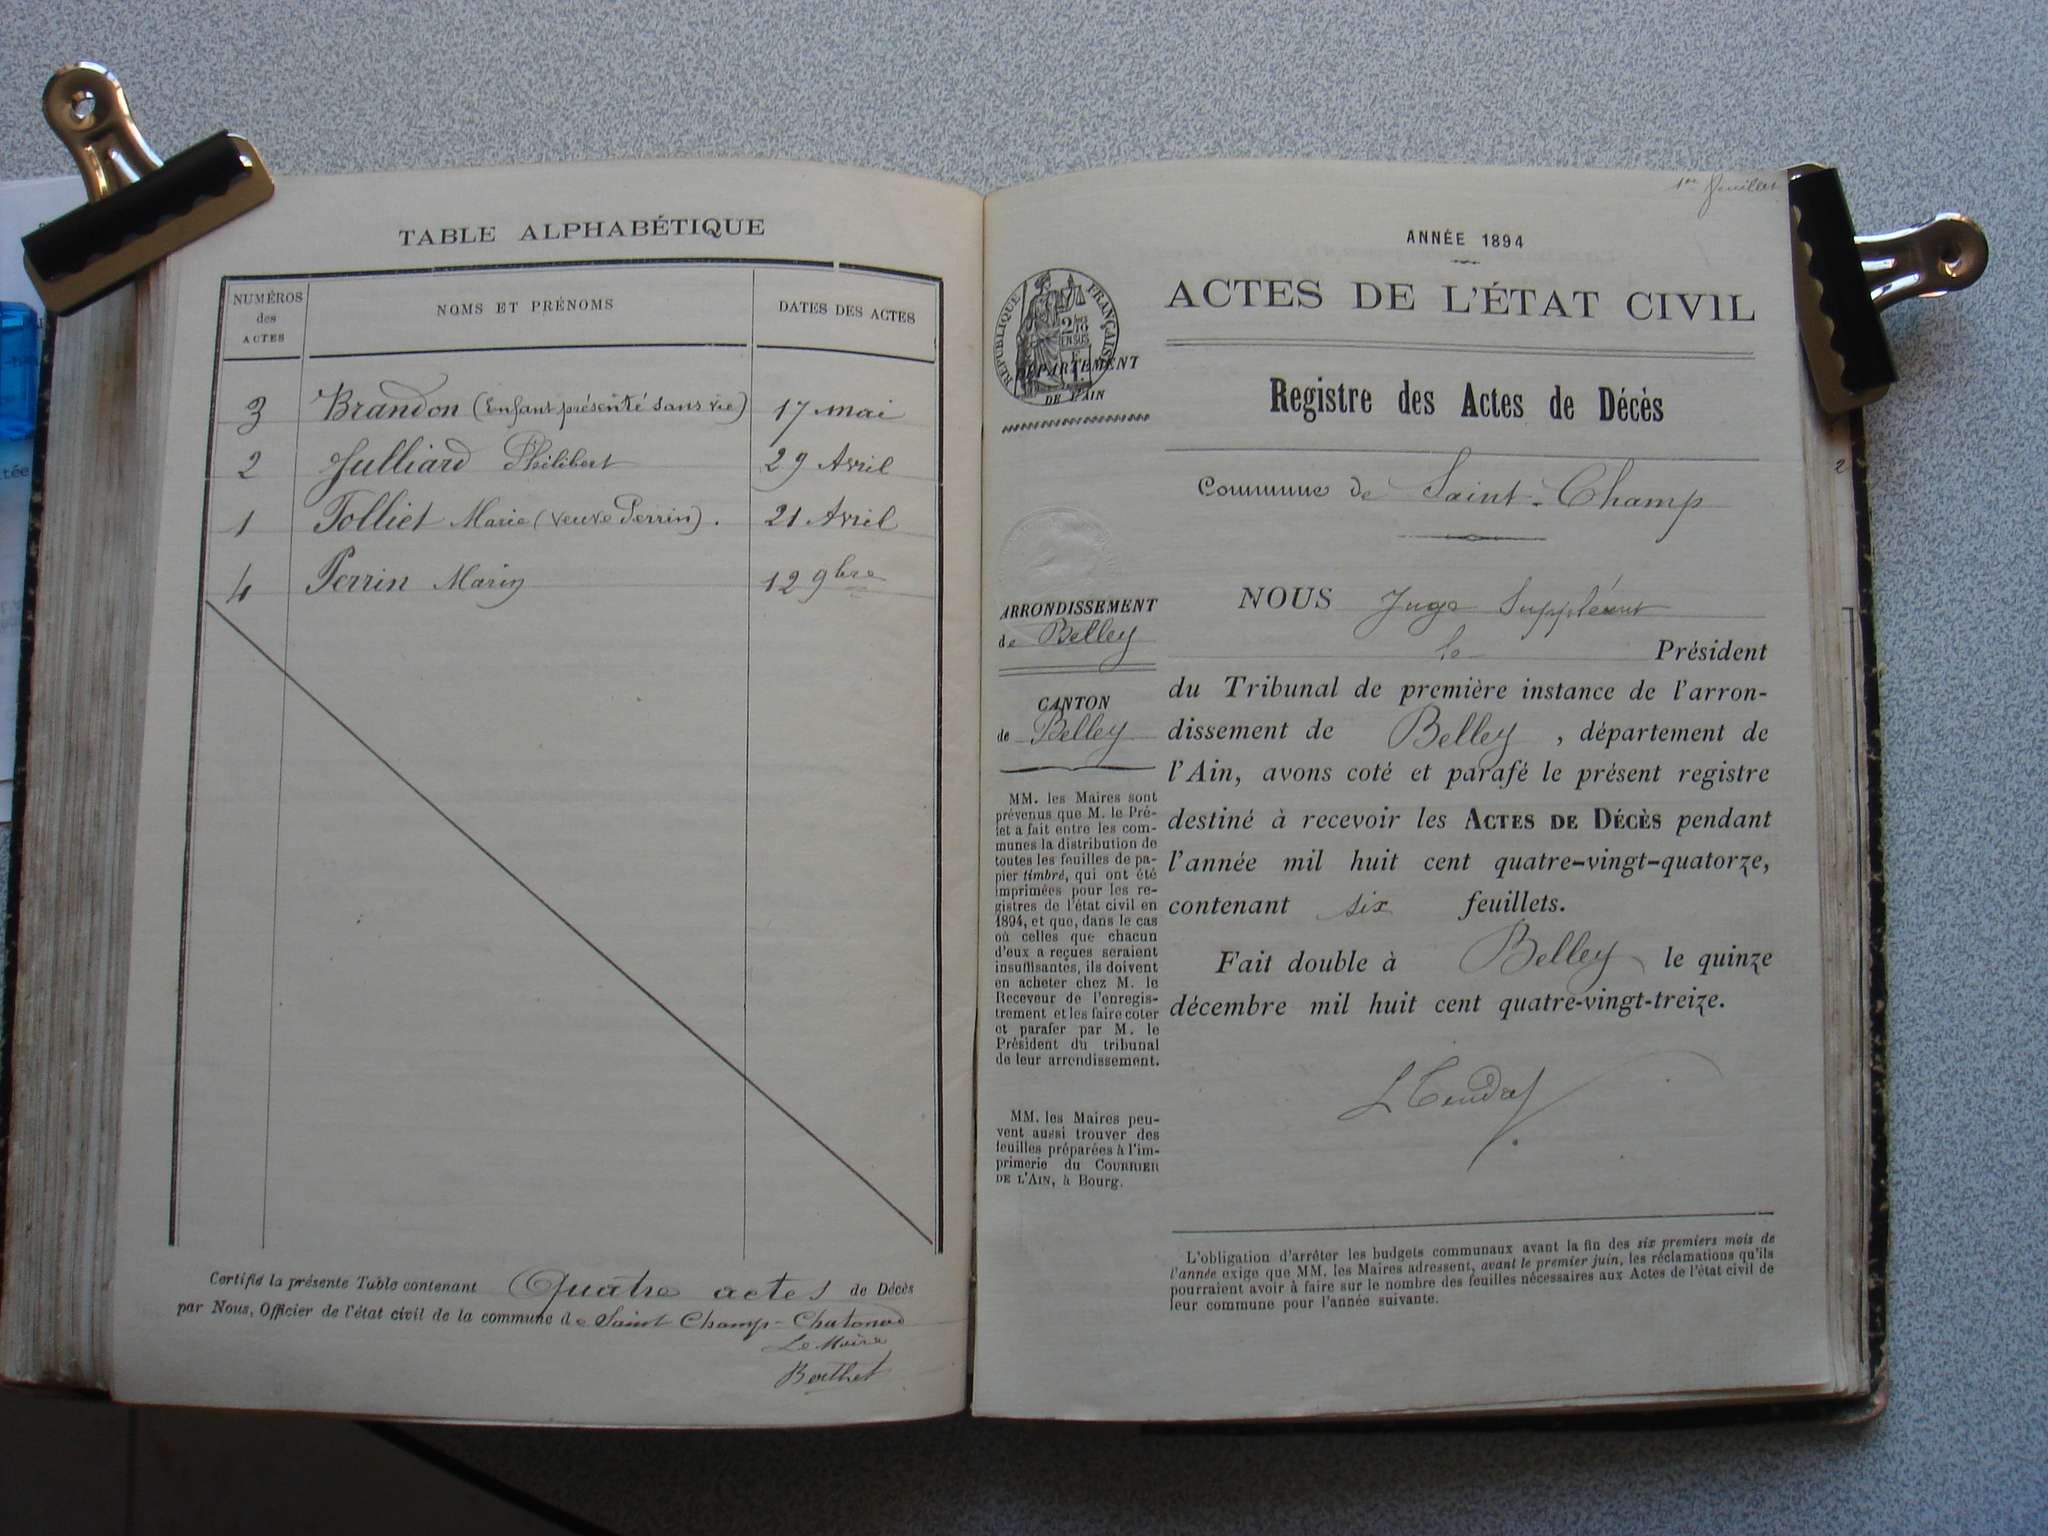 TABLE ALPHABÉTIQUE
NUMÉROS des ACTES
NOMS ET PRÉNOMS
DATES DES ACTES
3 Brandon (Enfant présenté sans vie) 17 mai
2 Julliard Philibert 29 Avril
1 Tolliet Marie (veuve Perrin). 21 Avril
4 Perrin Marin 12 9bre
Certifié la présente Table contenant Quatre actes de Décès
par Nous, Officier de l'état civil de la commune de Saint Champ-Chatonod
Le Maire
Berthet
1er feuillet
ANNÉE 1894
ACTES DE L'ÉTAT CIVIL
RÉPUBLIQUE FRANÇAISE
2/10 EN SUS
DÉPARTEMENT
DE L'AIN
Registre des Actes de Décès
Commune de Saint-Champ
ARRONDISSEMENT
de Belley
CANTON
de Belley
MM. les Maires sont
prévenus que M. le Pré-
fet a fait entre les com-
munes la distribution de
toutes les feuilles de pa-
pier timbré, qui ont été
imprimées pour les re-
gistres de l'état civil en
1894, et que, dans le cas
où celles que chacun
d'eux a reçues seraient
insuffisantes, ils doivent
en acheter chez M. le
Receveur de l'enregis-
trement et les faire coter
et parafer par M. le
Président du tribunal
de leur arrondissement.
MM. les Maires peu-
vent aussi trouver des
feuilles préparées à l'im-
primerie du COURRIER
DE L'AIN, à Bourg.
NOUS Juge Suppléant
le Président
du Tribunal de première instance de l'arron-
dissement de Belley, département de
l'Ain, avons coté et parafé le présent registre
destiné à recevoir les ACTES DE DÉCÈS pendant
l'année mil huit cent quatre-vingt-quatorze,
contenant six feuillets.
Fait double à Belley, le quinze
décembre mil huit cent quatre-vingt-treize.
L'obligation d'arrêter les budgets communaux avant la fin des six premiers mois de
l'année exige que MM. les Maires adressent, avant le premier juin, les réclamations qu'ils
pourraient avoir à faire sur le nombre des feuilles nécessaires aux Actes de l'état civil de
leur commune pour l'année suivante.
2
tée